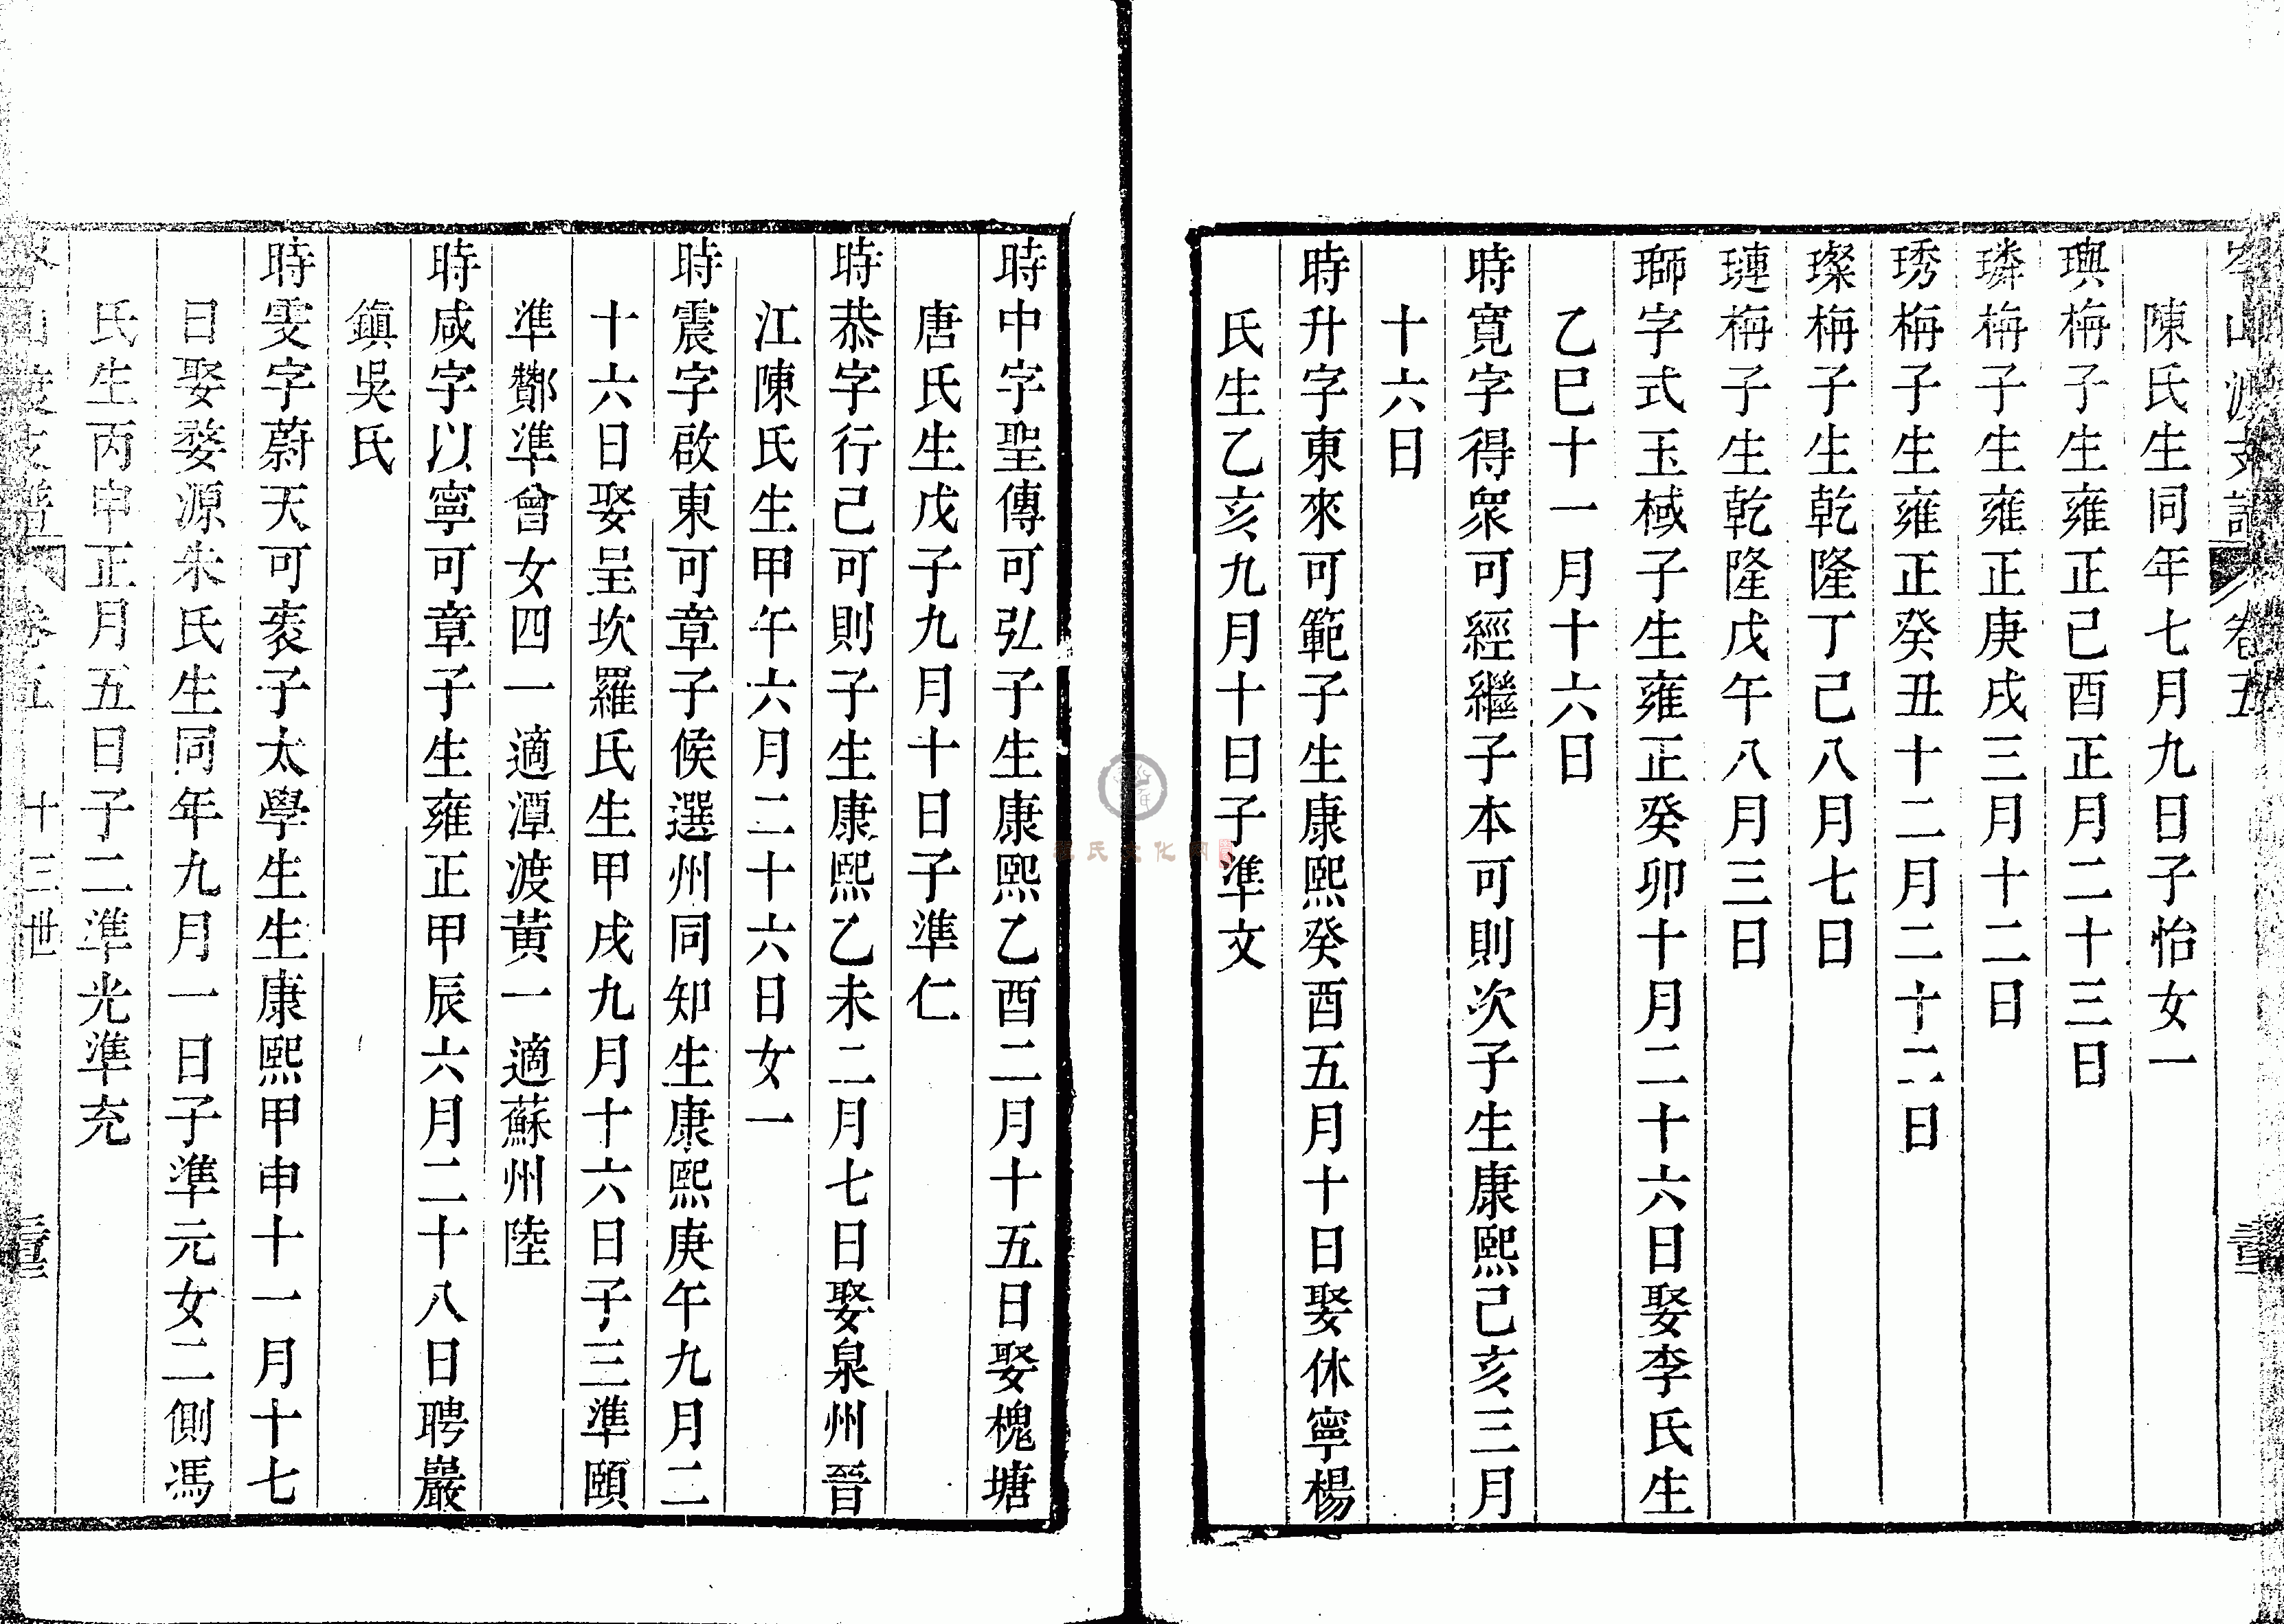 岑山渡支譜 卷五
陳氏生同年七月九日子怡女一
璵梅子生雍正己酉正月二十三日
璘梅子生雍正庚戌三月十二日
琇梅子生雍正癸丑十二月二十二日
璨梅子生乾隆丁巳八月七日
璉梅子生乾隆戊午八月三日
瑡字式玉棫子生雍正癸卯十月二十六日娶李氏生
乙巳十一月十六日
時寬字得衆可經繼子本可則次子生康熙己亥三月
十六日
時升字東來可範子生康熙癸酉五月十日娶休寧楊
氏生乙亥九月十日子準文
時中字聖傳可弘子生康熙乙酉二月十五日娶槐塘
唐氏生戊子九月十日子準仁
時恭字行己可則子生康熙乙未二月七日娶泉州晉
江陳氏生甲午六月二十六日女一
時震字啟東可章子候選州同知生康熙庚午九月二
十六日娶呈坎羅氏生甲戌九月十六日子三準頤
準酇準曾女四一適潭渡黃一適蘇州陸
時咸字以寧可章子生雍正甲辰六月二十八日聘嚴
鎮吳氏
時雯字蔚天可袠子太學生生康熙甲申十一月十七
日娶婺源朱氏生同年九月一日子準元女二側馮
氏生丙申正月五日子二準光準充
岑山渡支譜 卷五 十三世